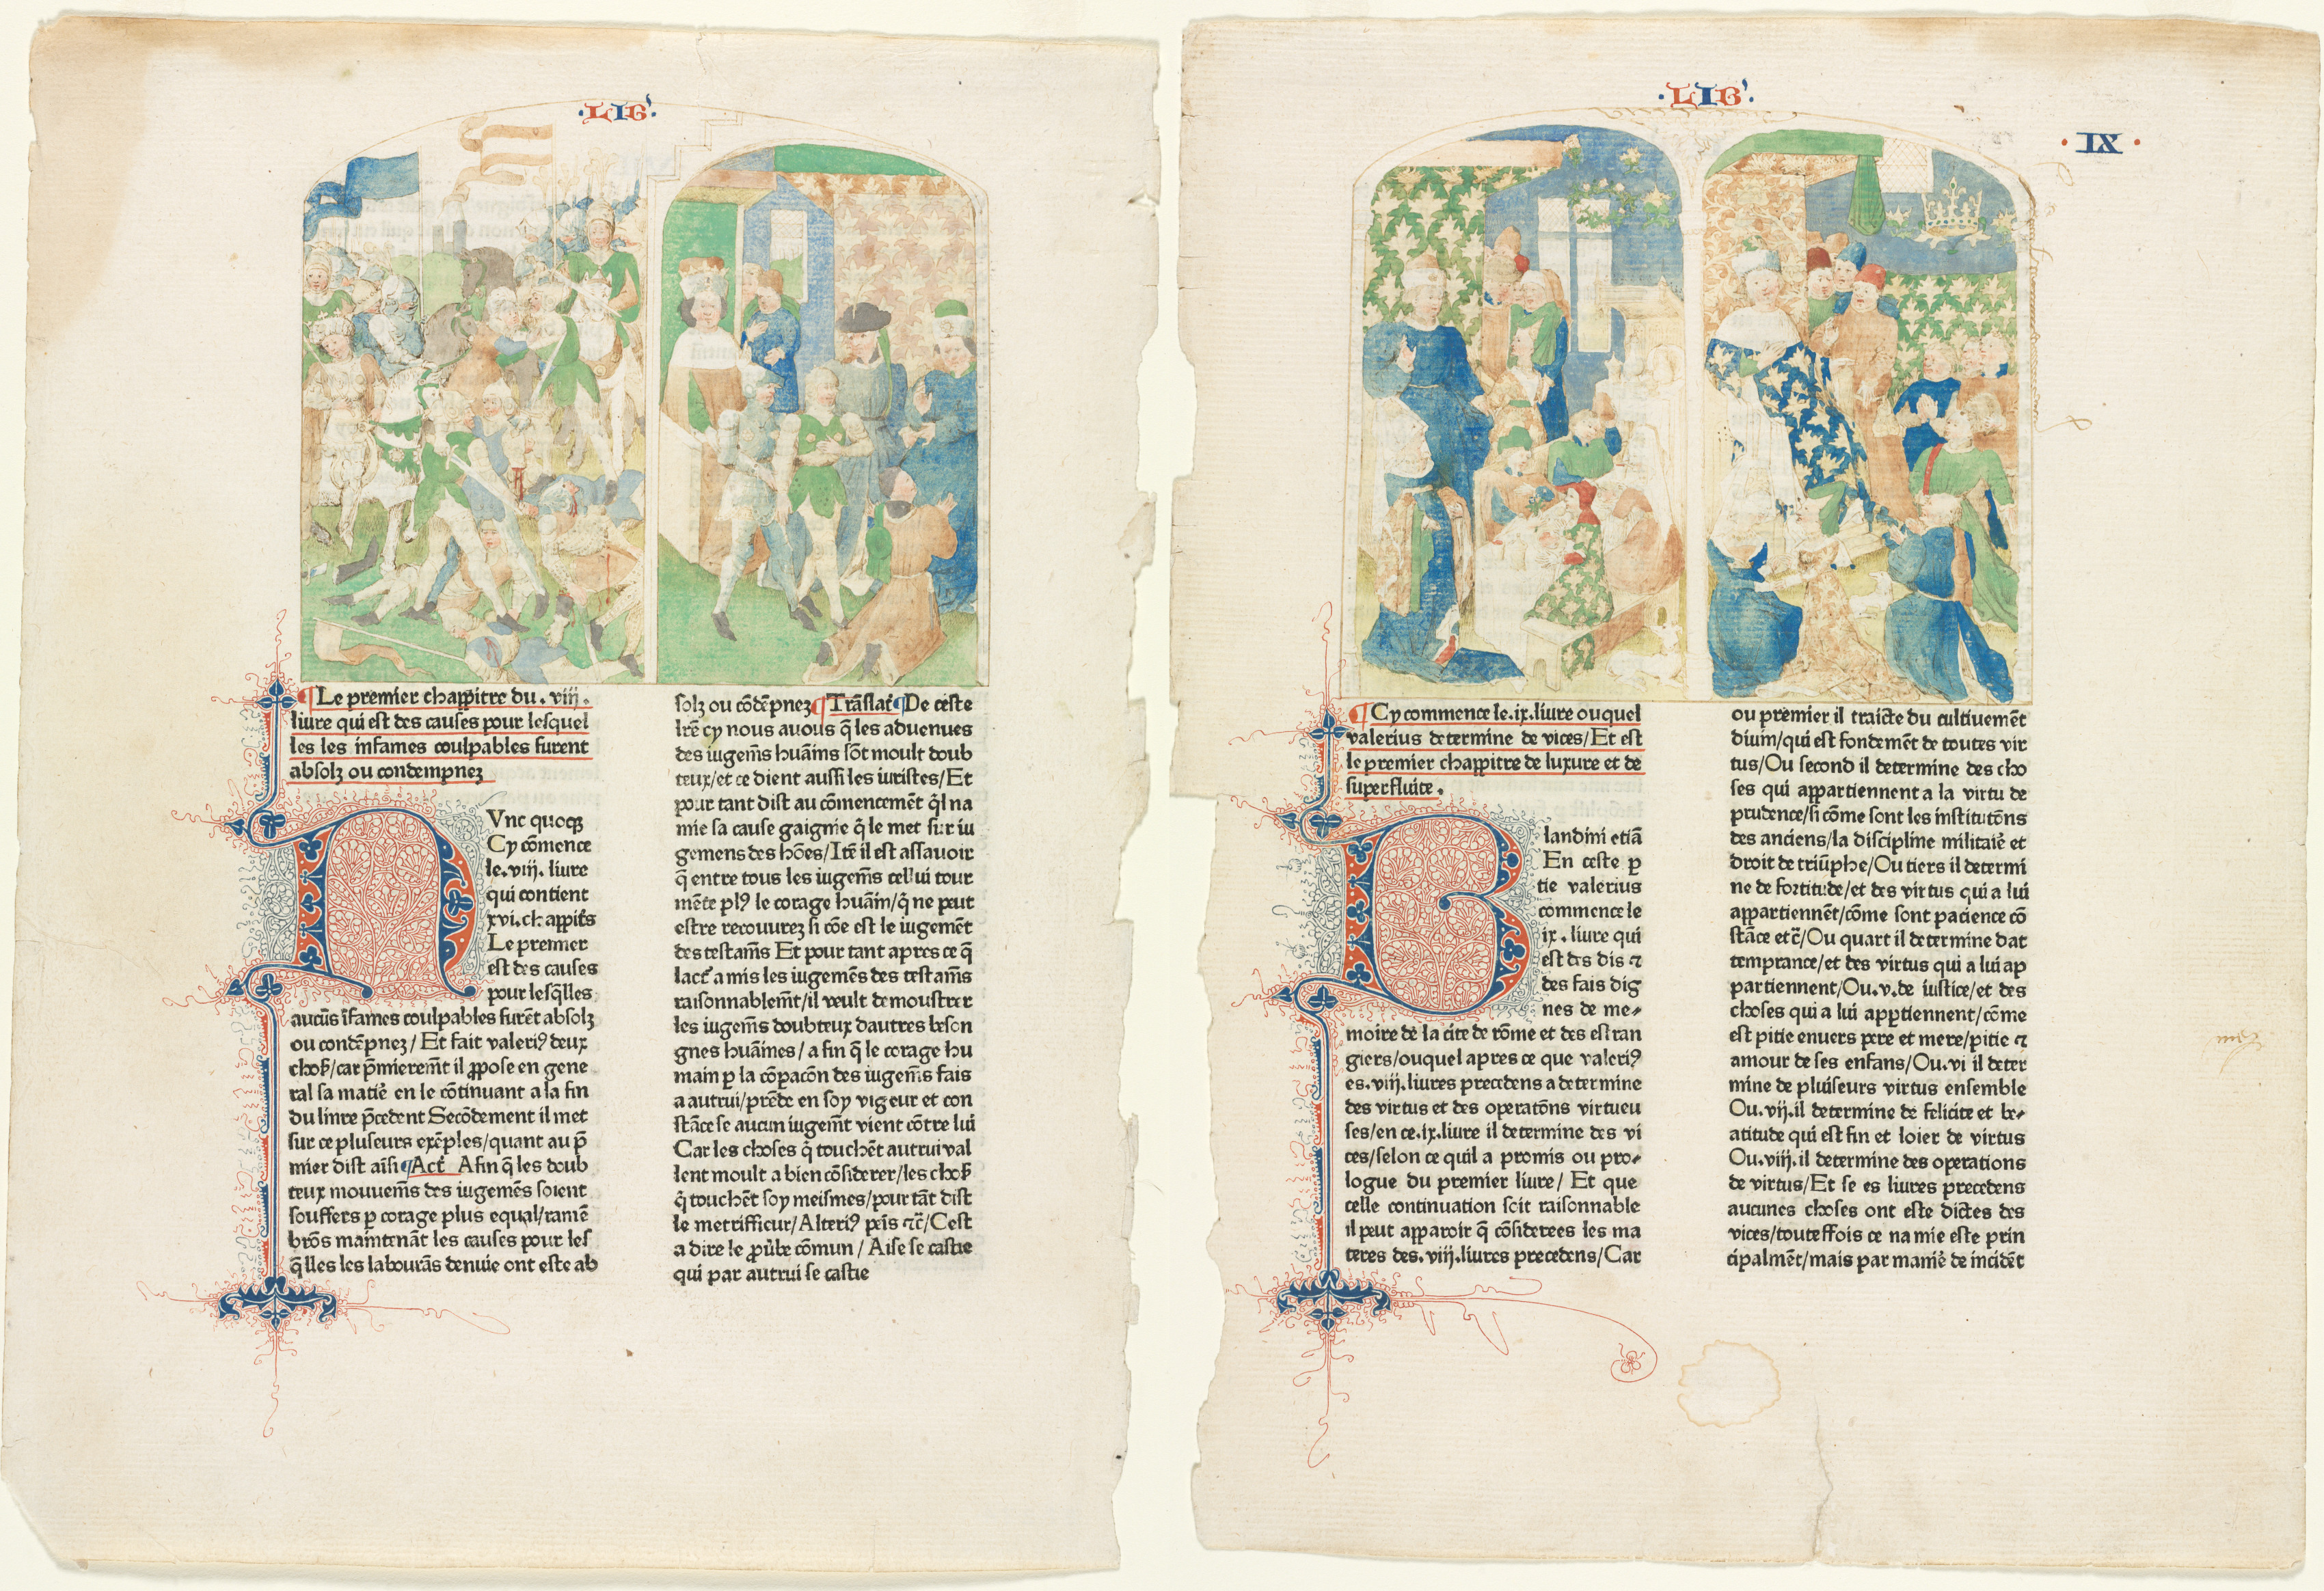 ·LIB'·
¶Le premier chappitre du . viij .
liure qui est des causes pour lesquel
les les infames coulpables furent
absolz ou condempnez
Vnc quoqꝫ
Cy cōmence
le.viij. liure
qui contient
xvi.chappit̄s
Le premier
est des causes
pour lesq̄lles
aucūs īfames coulpables furēt absolz
ou condēpnez/Et fait valeriꝰ deux
chos̄/car p̄mierem̄t il ꝓpose en gene
ral sa matie᷒ en le cōtinuant a la fin
du liure p̄cedent Secōdement il met
sur ce pluseurs exēples/quant au p̄
mier dist aīsi ¶Act᷒ Afin q̄ les doub
teux mouuem̄s des iugemēs soient
souffers ꝑ corage plus equal/ramē
brōs maintenāt les causes pour les
q̄lles les labourās denuie ont este ab
solz ou cōdēpnez ¶Trāslat᷒ ¶De ceste
lr̄e cy nous auons q̄ les aduenues
des iugem̄s huāins sōt moult doub
teux/et ce dient aussi les iuristes/Et
pour tant dist au cōmencemēt q̄l na
mie sa cause gaignie q̄ le met sur iu
gemens des hōes/Itē il est assauoir
q̄ entre tous les iugem̄s cellui tour
mēte plꝰ le corage huāin/q̄ ne peut
estre recouurez si cōe est le iugemēt
des testam̄s Et pour tant apres ce q̄
lact᷒ a mis les iugemēs des testam̄s
raisonnablem̄t/il veult demoustrer
les iugem̄s doubteux dautres beson
gnes huāines/a fin q̄ le corage hu
main ꝑ la cōpacōn des iugem̄s fais
a autrui/prēde en soy vigeur et con
stāce se aucun iugem̄t vient cōtre lui
Car les choses q̄ touchēt autrui val
lent moult a bien cōsiderer/les chos̄
q̄ touchēt soy meismes/pour tāt dist
le metrifficur/Alteriꝰ peīs ⁊c̄/Cest
a dire le ꝓūbe cōmun/Aise se castie
qui par autrui se castie
·LIB'·
· IX ·
¶Cy commence le.ix.liure ouquel
valerius determine de vices/Et est
le premier chappitre de luxure et de
superfluite .
landini etiā
En ceste ꝑ
tie valerius
commence le
ix . liure qui
est des dis ⁊
des fais dig
nes de me-
moire de la cite de rōme et des estran
giers/ouquel apres ce que valeriꝰ
es.viij.liures precedens a determine
des virtus et des operatōns virtueu
ses/en ce.ix.liure il determine des vi
ces/selon ce quil a promis ou pro-
logue du premier liure/ Et que
celle continuation soit raisonnable
il peut apparoir q̄ cōsiderees les ma
teres des.viij.liures precedens/Car
ou premier il traicte du cultiuemēt
dium/qui est fondemēt de toutes vir
tus/Ou second il determine des cho
ses qui appartiennent a la virtu de
prudence/si cōme sont les institutōns
des anciens/la discipline militaie᷒ et
droit de triūphe/Ou tiers il determi
ne de fortitude/et des virtus qui a lui
appartiennēt/cōme sont pacience cō
stāce etc̄/Ou quart il determine dat
temprance/et des virtus qui a lui ap
partiennent/Ou.v.de iustice/et des
choses qui a lui apꝑtiennent/cōme
est pitie enuers pere et mere/pitie ⁊
amour de ses enfans/Ou.vi il deter
mine de pluiseurs virtus ensemble
Ou.vij.il determine de felicite et be-
atitude qui est fin et loier de virtus
Ou.viij.il determine des operations
de virtus/Et se es liures precedens
aucunes choses ont este dictes des
vices/touteffois ce na mie este prin
cipalmēt/mais par manie᷒ de incidēt